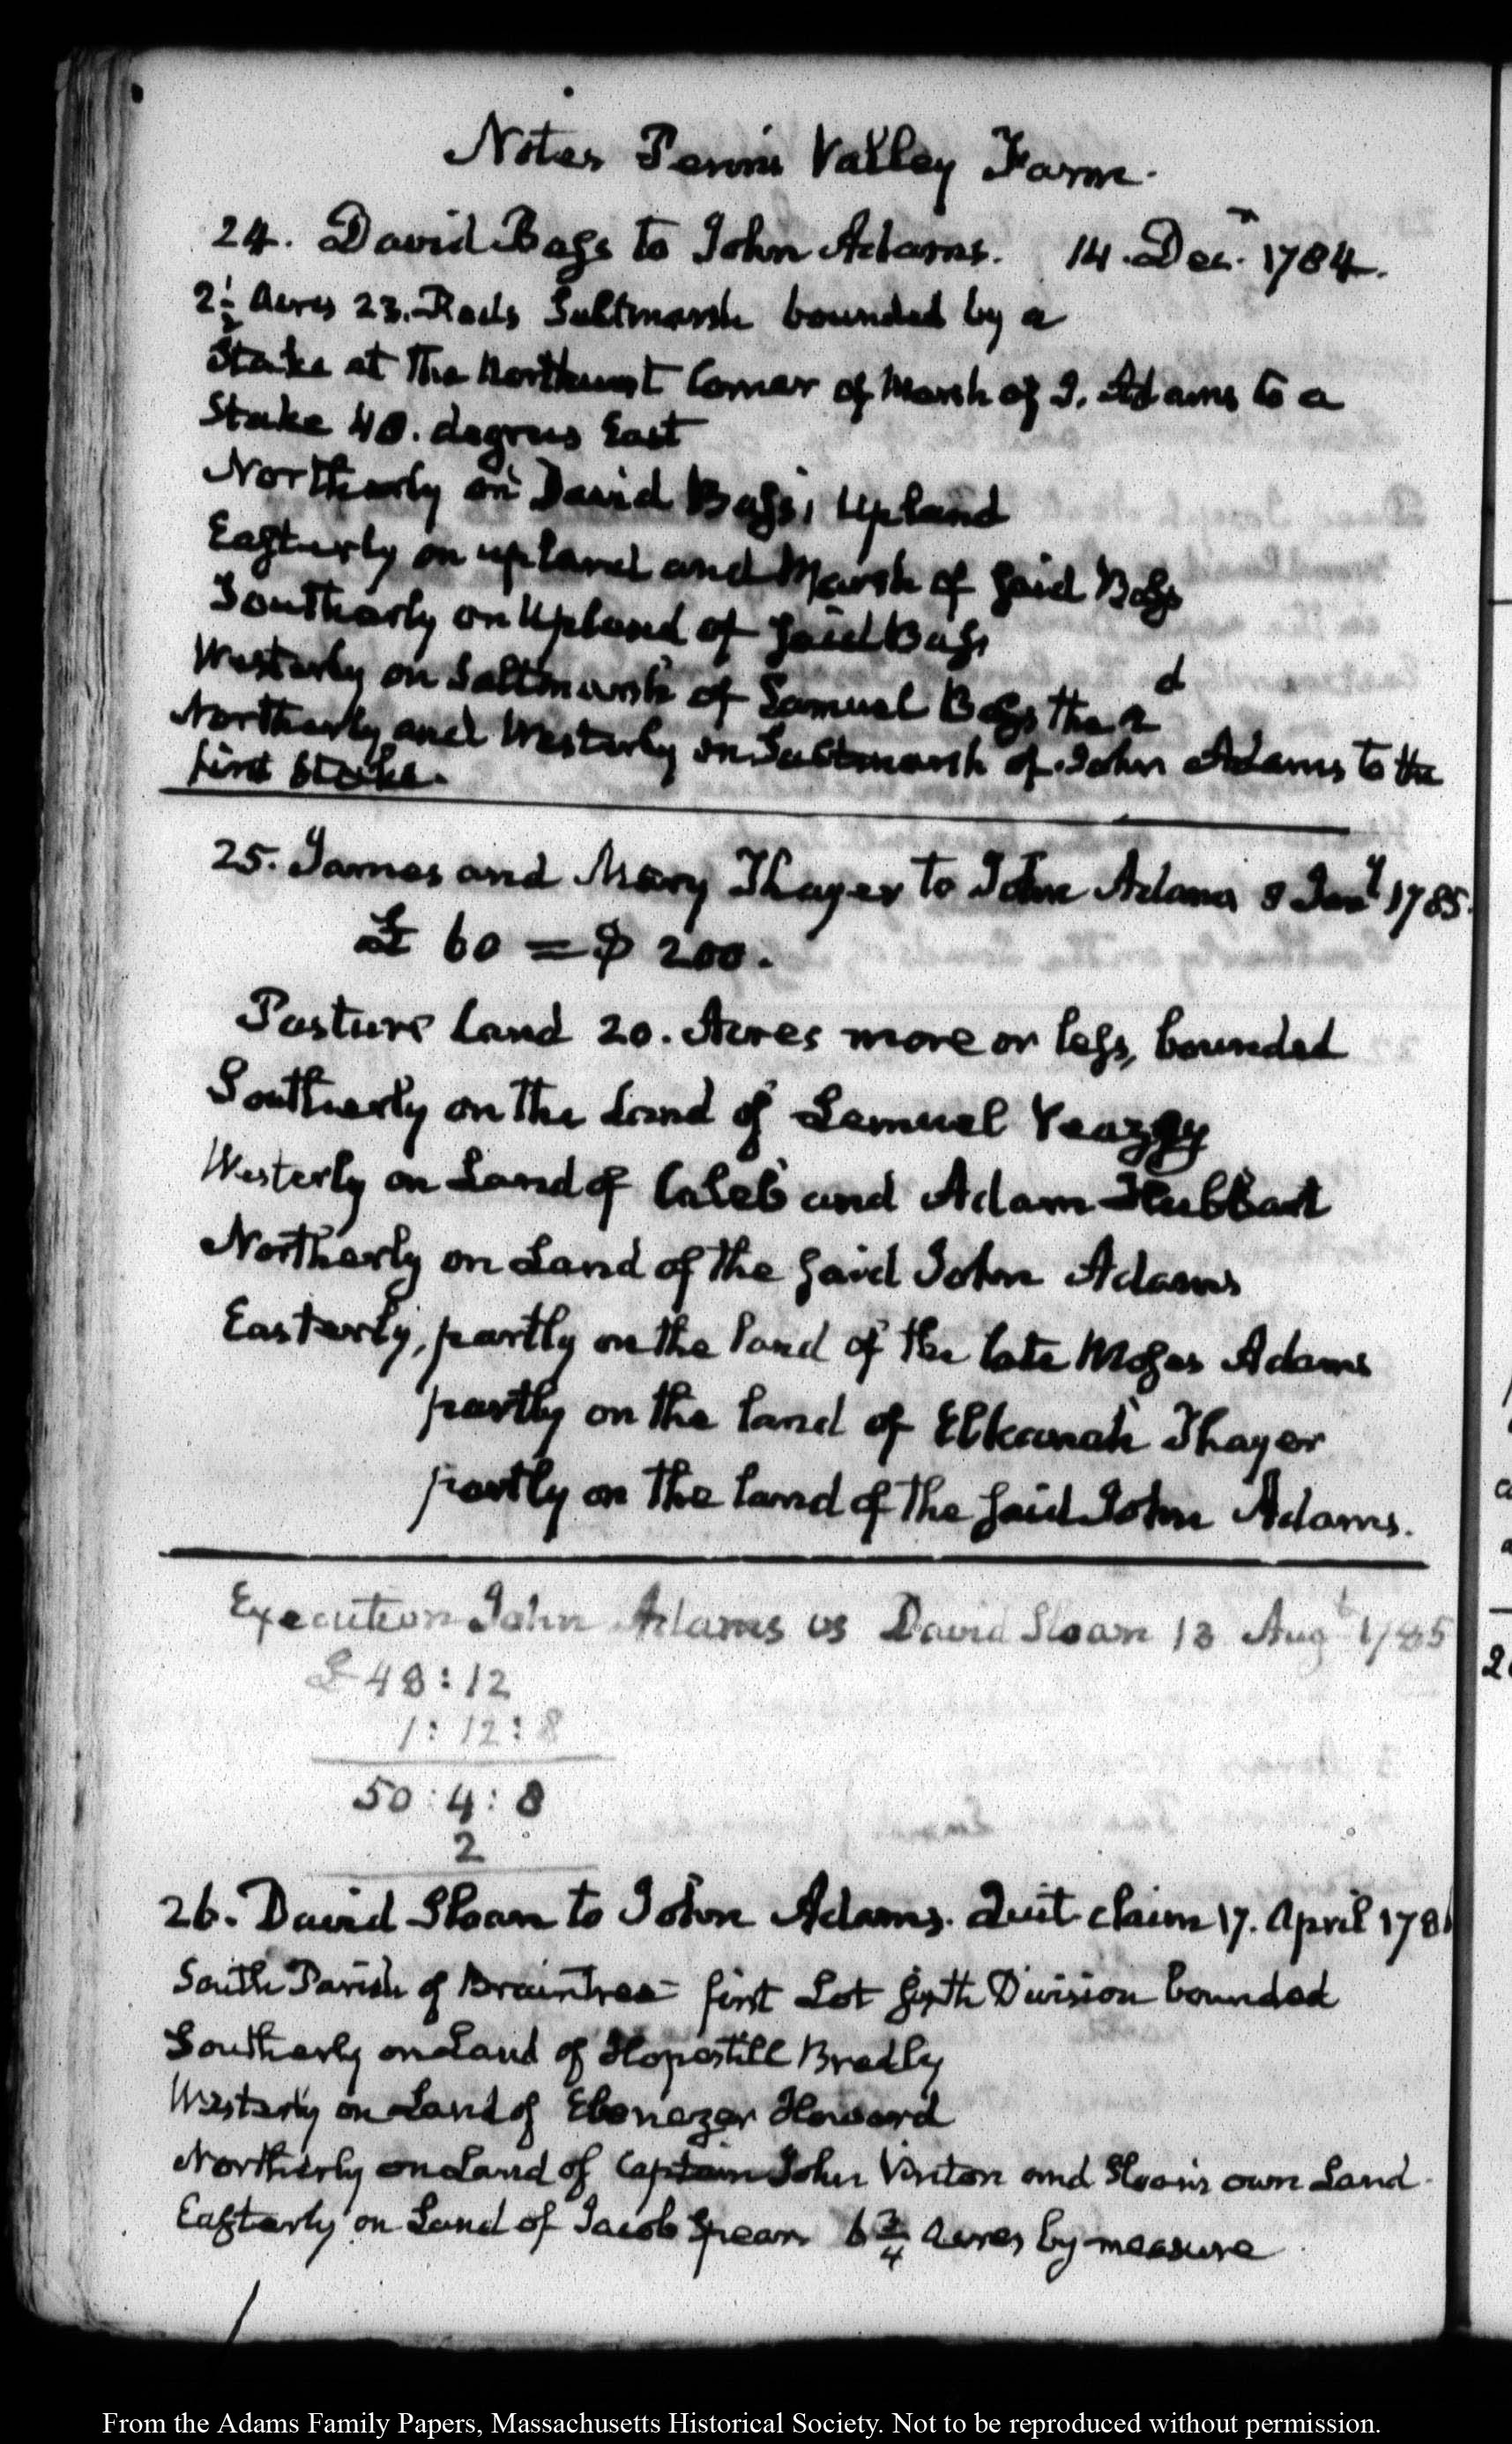 Notes Penn's Valley Farm.
24. David Bass to John Adams. 14. Decr. 1784.
2 1/2 Acres 23. Rods Saltmarsh bounded by a
Stake at the Northwest Corner of Marsh of J. Adams to a
Stake 40. degrees East
Northerly on David Bass's Upland
Easterly on upland and Marsh of said Bass
Southerly on Upland of said Bass
Westerly on Saltmarsh of Samuel Bass the 2d
Northerly and Westerly on Saltmarsh of John Adams to the
first Stake.
25. James and Mary Thayer to John Adams 8 Jany 1785.
£ 60 = $ 200.
Pasture land 20. Acres more or less, bounded
Southerly on the Land of Lemuel Veazey
Westerly on Land of Caleb and Adam Hubbart
Northerly on Land of the said John Adams
Easterly, partly on the land of the late Moses Adams
partly on the land of Elkanah Thayer
partly on the land of the said John Adams.
Execution John Adams vs David Sloan 13 Augt 1785
£ 48:12
1:12:8
50:4:8
2
26. David Sloan to John Adams. Quit claim 17. April 178
South Parish of Braintree first Lot sixth Division bounded
Southerly on Land of Hopestill Bradly
Westerly on Land of Ebenezer Howard
Northerly on Land of Captain John Vinton and Sloan's own Land.
Easterly on Land of Jacob Spear. 6 3/4 Acres by measure
From the Adams Family Papers, Massachusetts Historical Society. Not to be reproduced without permission.